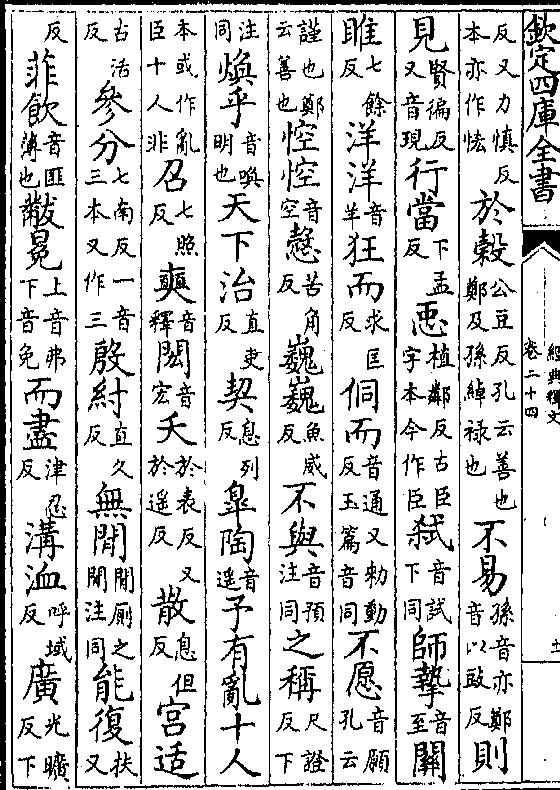 欽定四庫全書
經典釋文
卷二十四
反又力慎反
本亦作恡
於榖公豆反孔云善也
鄭及孫綽禄也
不易孫音亦鄭
音以豉反
則
見賢徧反
又音現
行當下孟
反
𢘑植鄰反古臣
字本今作臣
弑音試
下同
師摯音
至
關
雎七餘
反
洋洋音
羊
狂而求匡
反
侗而音通又勅動
反玉篇音同
不愿音願
孔云
謹也鄭
云善也
悾悾音
空
慤苦角
反
巍巍魚威
反
不與音預
注同
之稱尺證
反下
注
同
煥乎音喚
明也
天下治直吏
反
契息列
反
臯陶音
遥
予有亂十人
本或作亂
臣十人非
召七照
反
奭音
釋
閎音
宏
夭於表反又
於遥反
散息但
反
宫适
古活
反
參分七南反一音
三本又作三
殷紂直久
反
無間間厠之
間注同
能復扶
又
反
菲飲音匪
薄也
黻冕上音弗
下音免
而盡津忍
反
溝洫呼域
反
廣光曠
反下